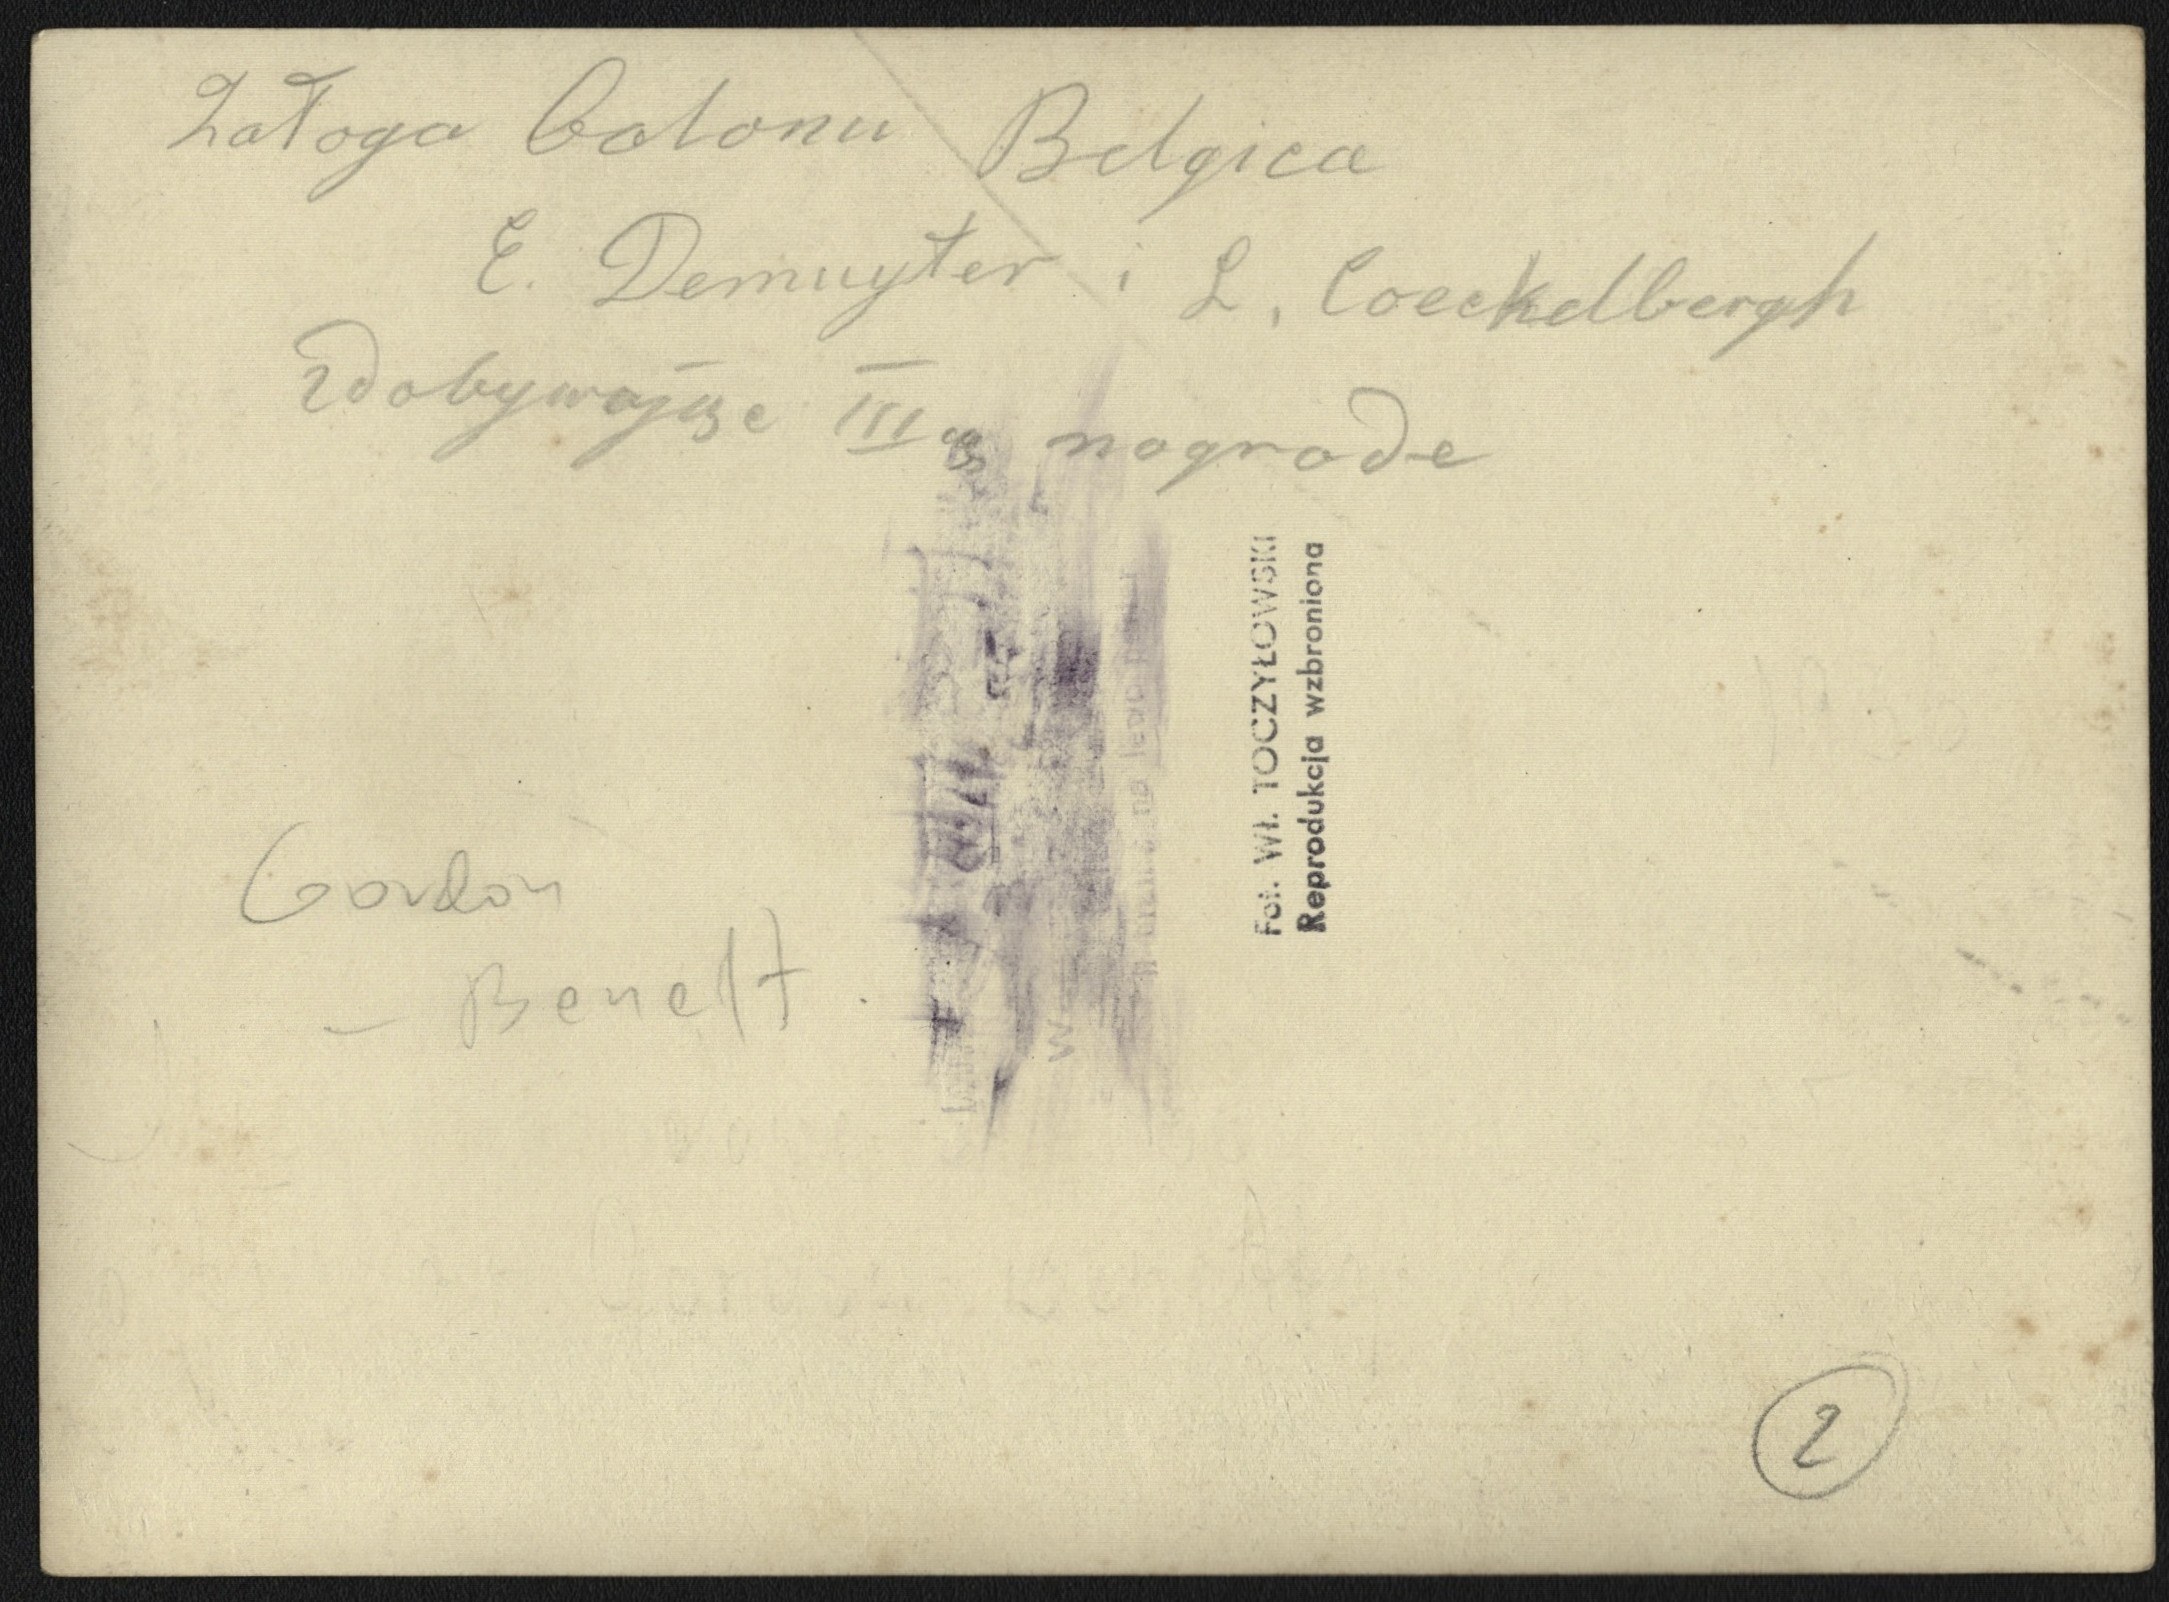 Załoga balonu Belgica
E. Demuyter i L. Coeckelbergh
zdobywając III cą nagrodę
Fot. Wł. TOCZYŁOWSKI
Reprodukcja wzbroniona
Gordon
- Benett
2